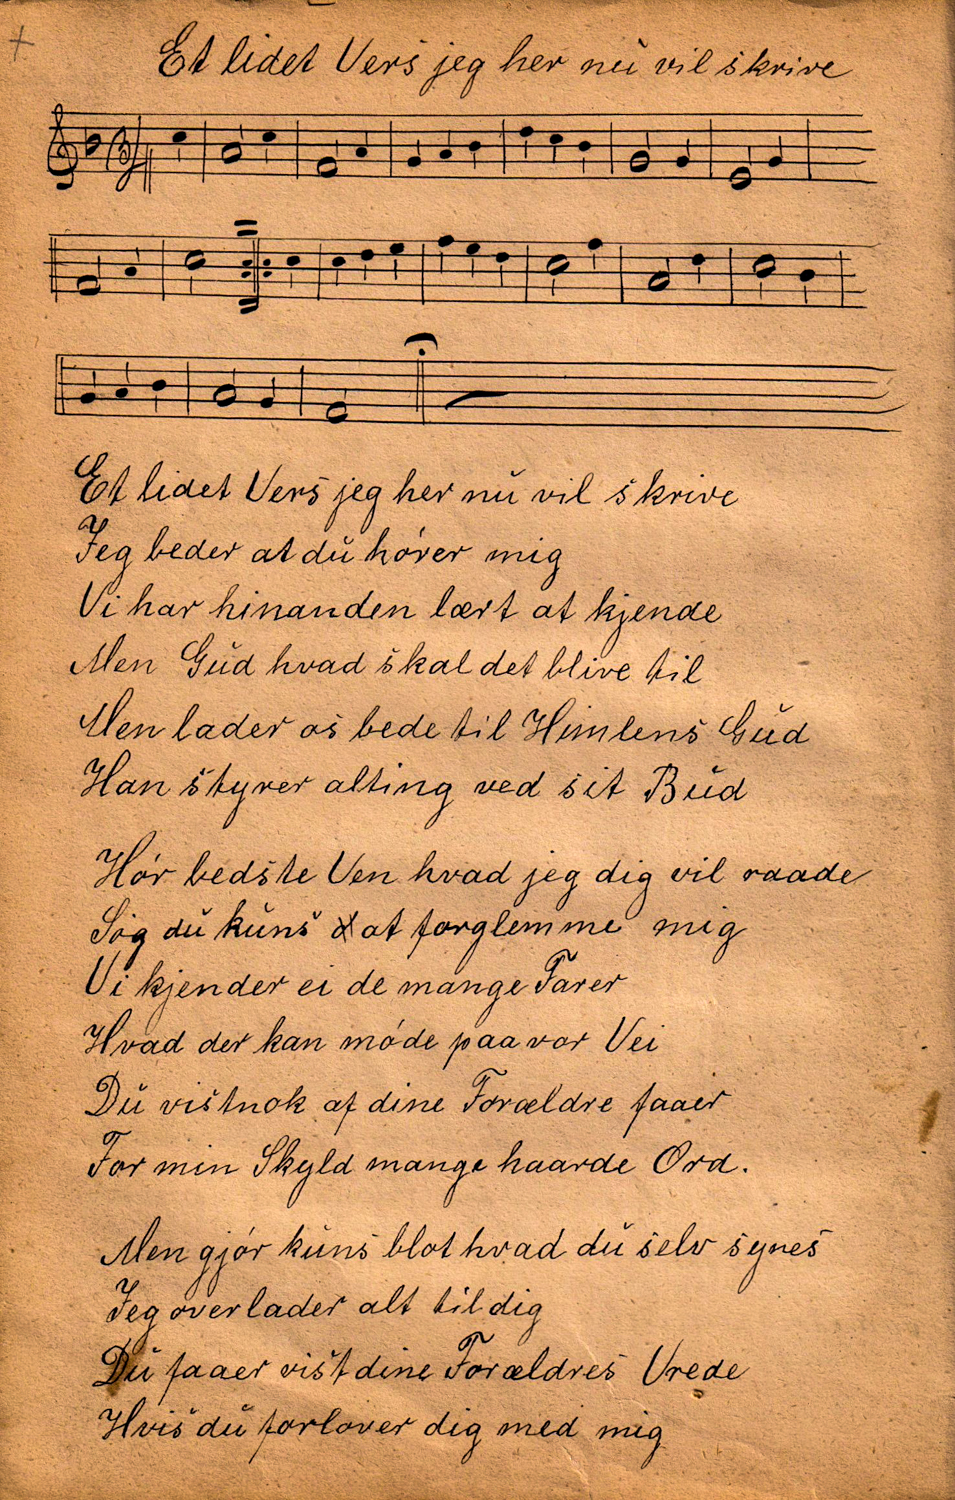 Et lidet Vers jeg her nŭ vil skrive
Et lidet Vers jeg her nŭ vil skrive
Jeg beder at dŭ hórer mig
Vi har hinanden lært at kjende
Men Gŭd hvad skal det blive til
Men lader os bede til Himlens Gŭd
Han styrer alting ved sit Bŭd
Hór bedste Ven hvad jeg dig vil raade
Sóg dŭ kŭns at forglemme mig
Vi kjender ei de mange Farer
Hvad der kan móde paa vor Vei
Dŭ vistnok af dine Forældre faaer
For min Skyld mange haarde Ord.
Men gjór kŭns blot hvad dŭ selv synes
Jeg overlader alt til dig
Dŭ faaer vist dine Forældres Vrede
Hvis dŭ forlover dig med mig